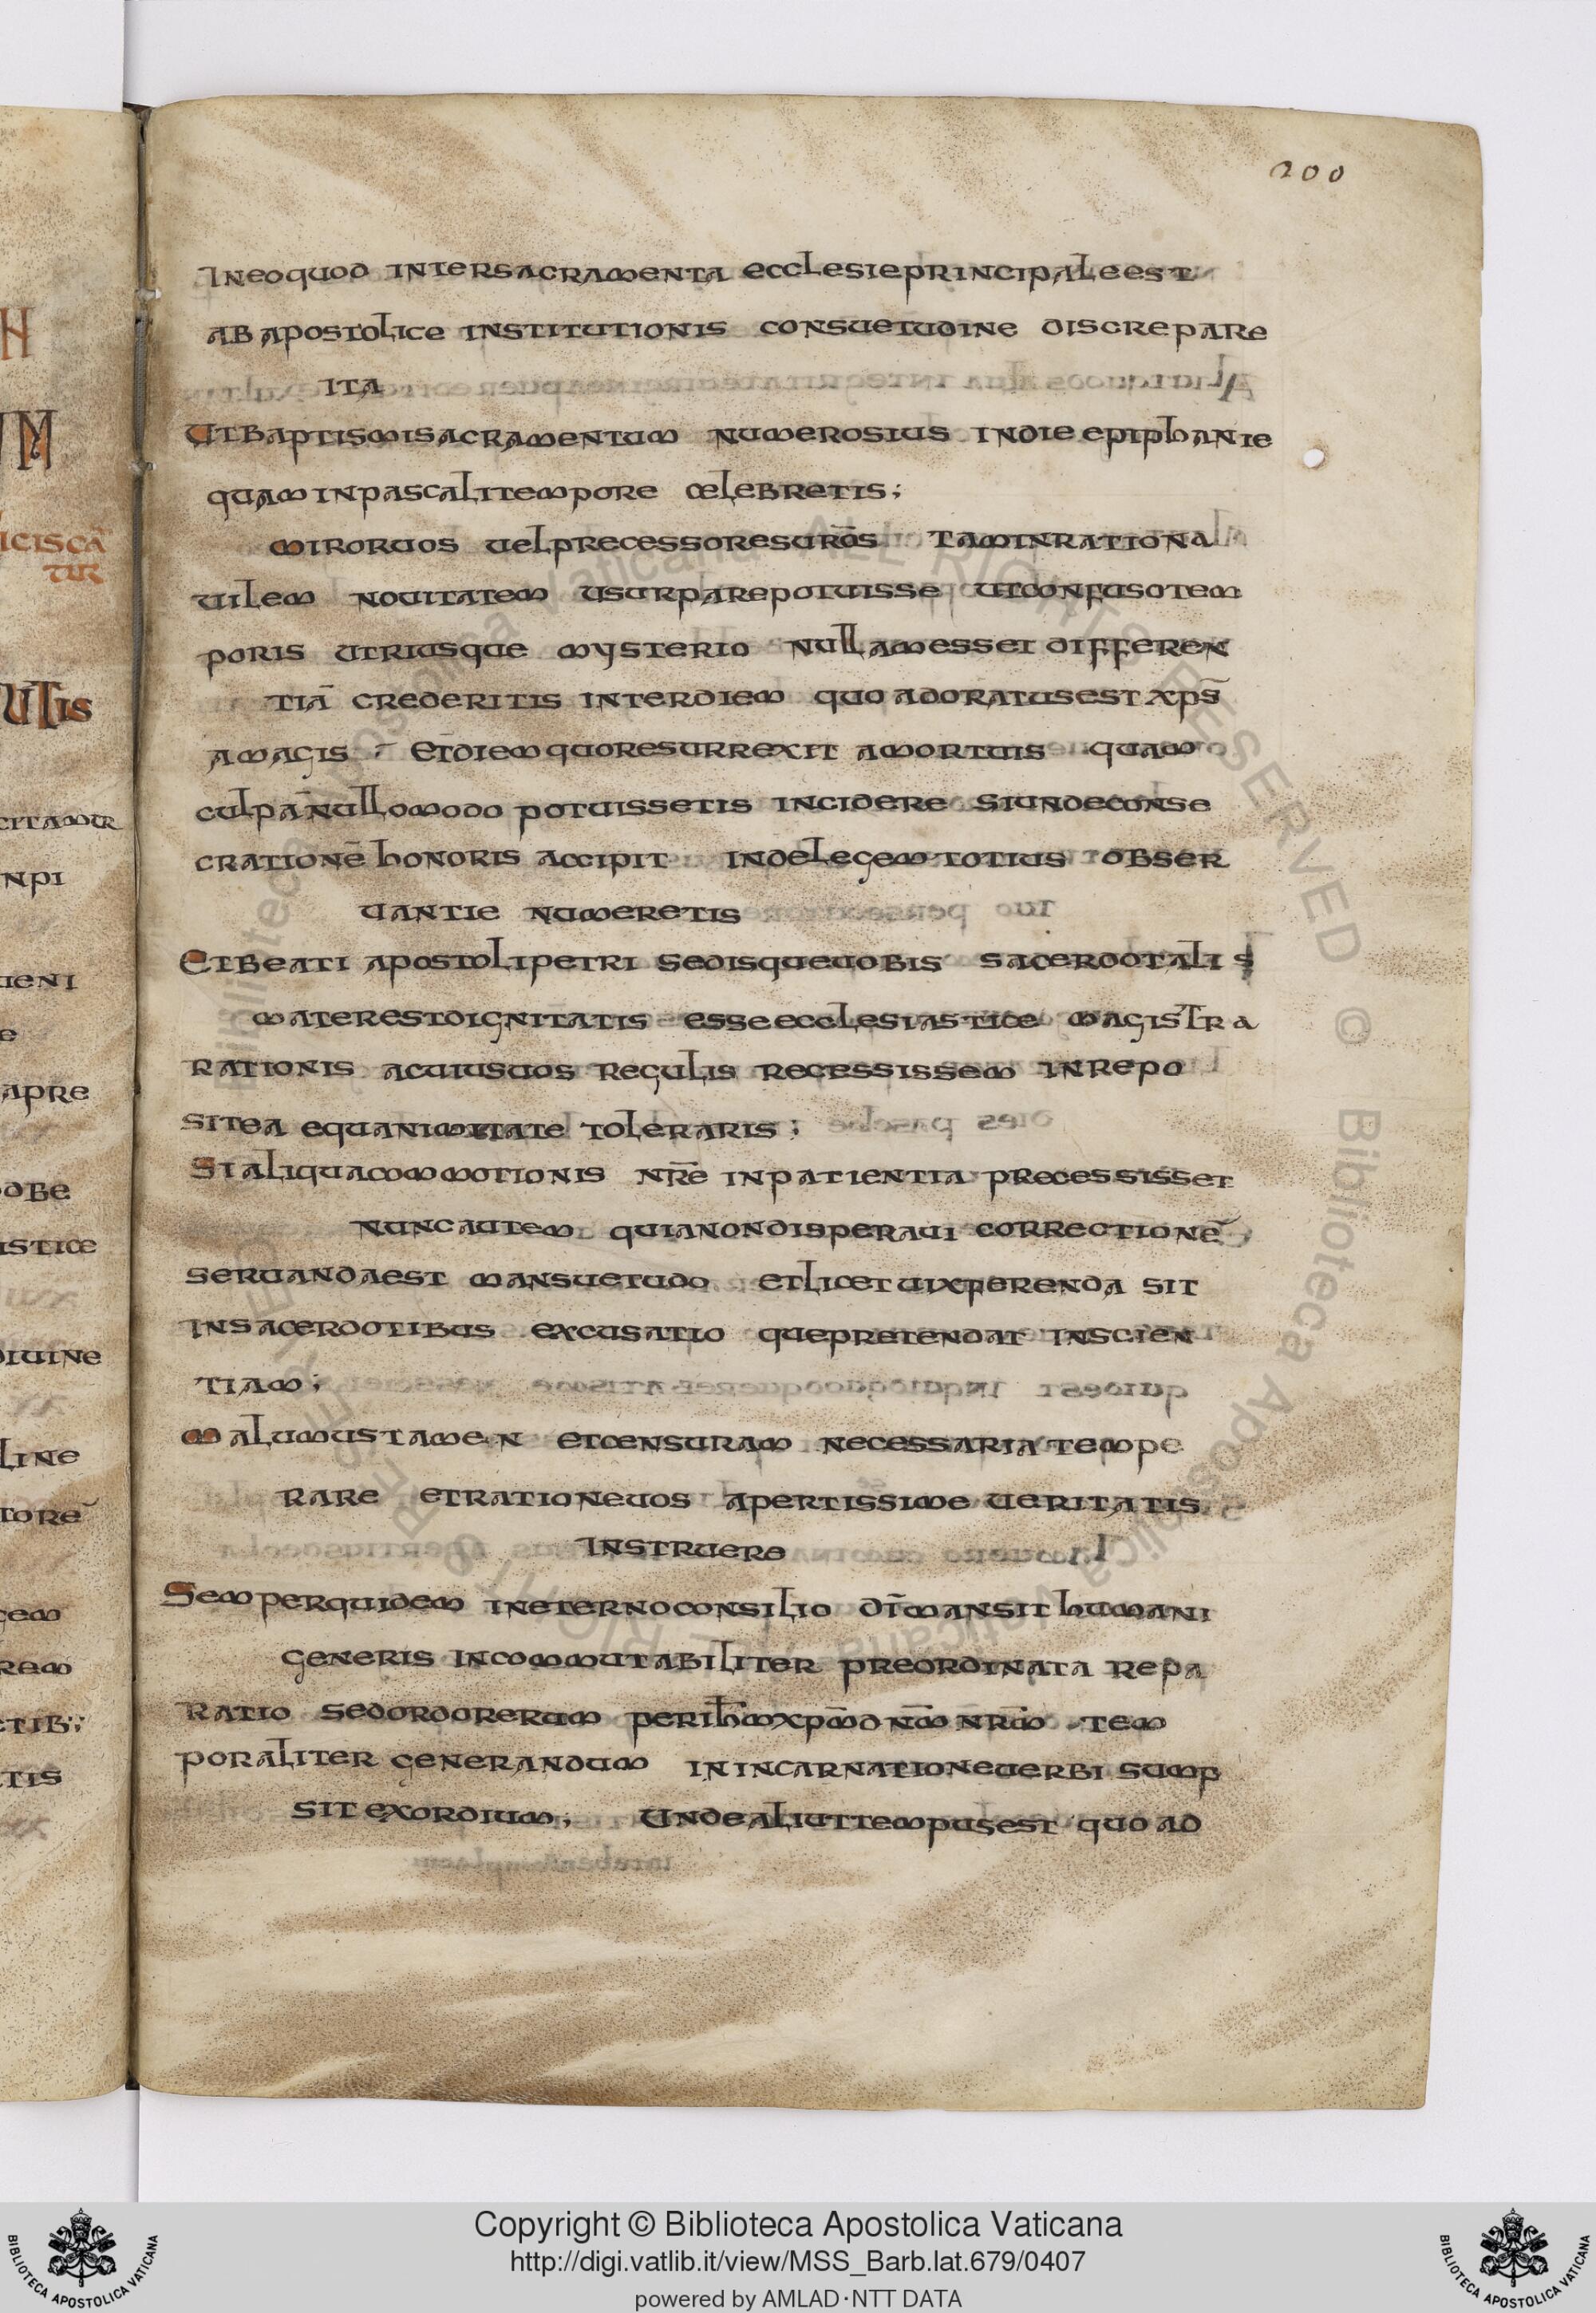 200
In eo quod inter sacramenta ecclesie principale est
ab apostolice institutionis consuetudine discrepare
ita
Ut baptismi sacramentum numerosius in die epiphanie
quam in pascali tempore celebretis;
miror vos vel precessores uros̄ tam inrationa
vilem novitatem usurpare potuisse ut confuso tem
poris utriusque mysterio nullam esset differen
tiā crederitis inter diem quo adoratus est xps̄
a magis et diem quo resurrexit a mortuis quam
culpā nullo modo potuissetis incidere si unde conse
crationē honoris accipit inde legem totius obser
vantie numeretis
Et beati apostoli petri sedis que vobis sacerdotalis
mater est dignitatis esse ecclesiastice magistra
rationis ac uius vos regulis recessissem in repo
sitea equanimitate toleraris;
Si aliqua commotionis nr̄e inpatientia precessisset
nunc autem quia non disperavi correctionē
servanda est mansuetudo et licet vix ferenda sit
in sacerdotibus excusatio que pretendat inscien
tiam;
malumus tamen et censuram necessaria tempe
rare et ratione vos apertissime veritatis
Instruere
Semper quidem in eterno consilio dī mansit humani
generis incommutabiliter preordinata repa
ratio sed ordo rerum per ihm̄ xpm̄ dnm̄ nrm̄ tem
poraliter generandum in incarnatione verbi sump
sit exordium; Unde aliut tempus est quo ad
Copyright © Biblioteca Apostolica Vaticana
http://digi.vatlib.it/view/MSS_Barb.lat.679/0407
powered by AMLAD·NTT DATA